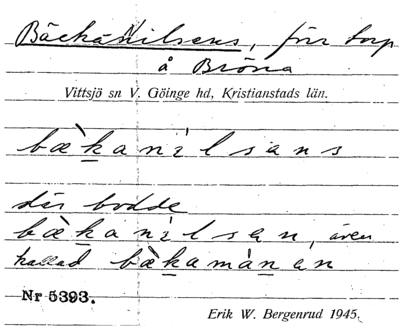 BäckaNilsens, förr torp
å Bröna
Vittsjö sn V. Göinge hd, Kristianstads län.
bæ̀ka nìlsans
där bodde
bæ̀ka nìlsen, även
kallad bæ̀kamànan
Nr 5393.
Erik W. Bergenrud 1945.